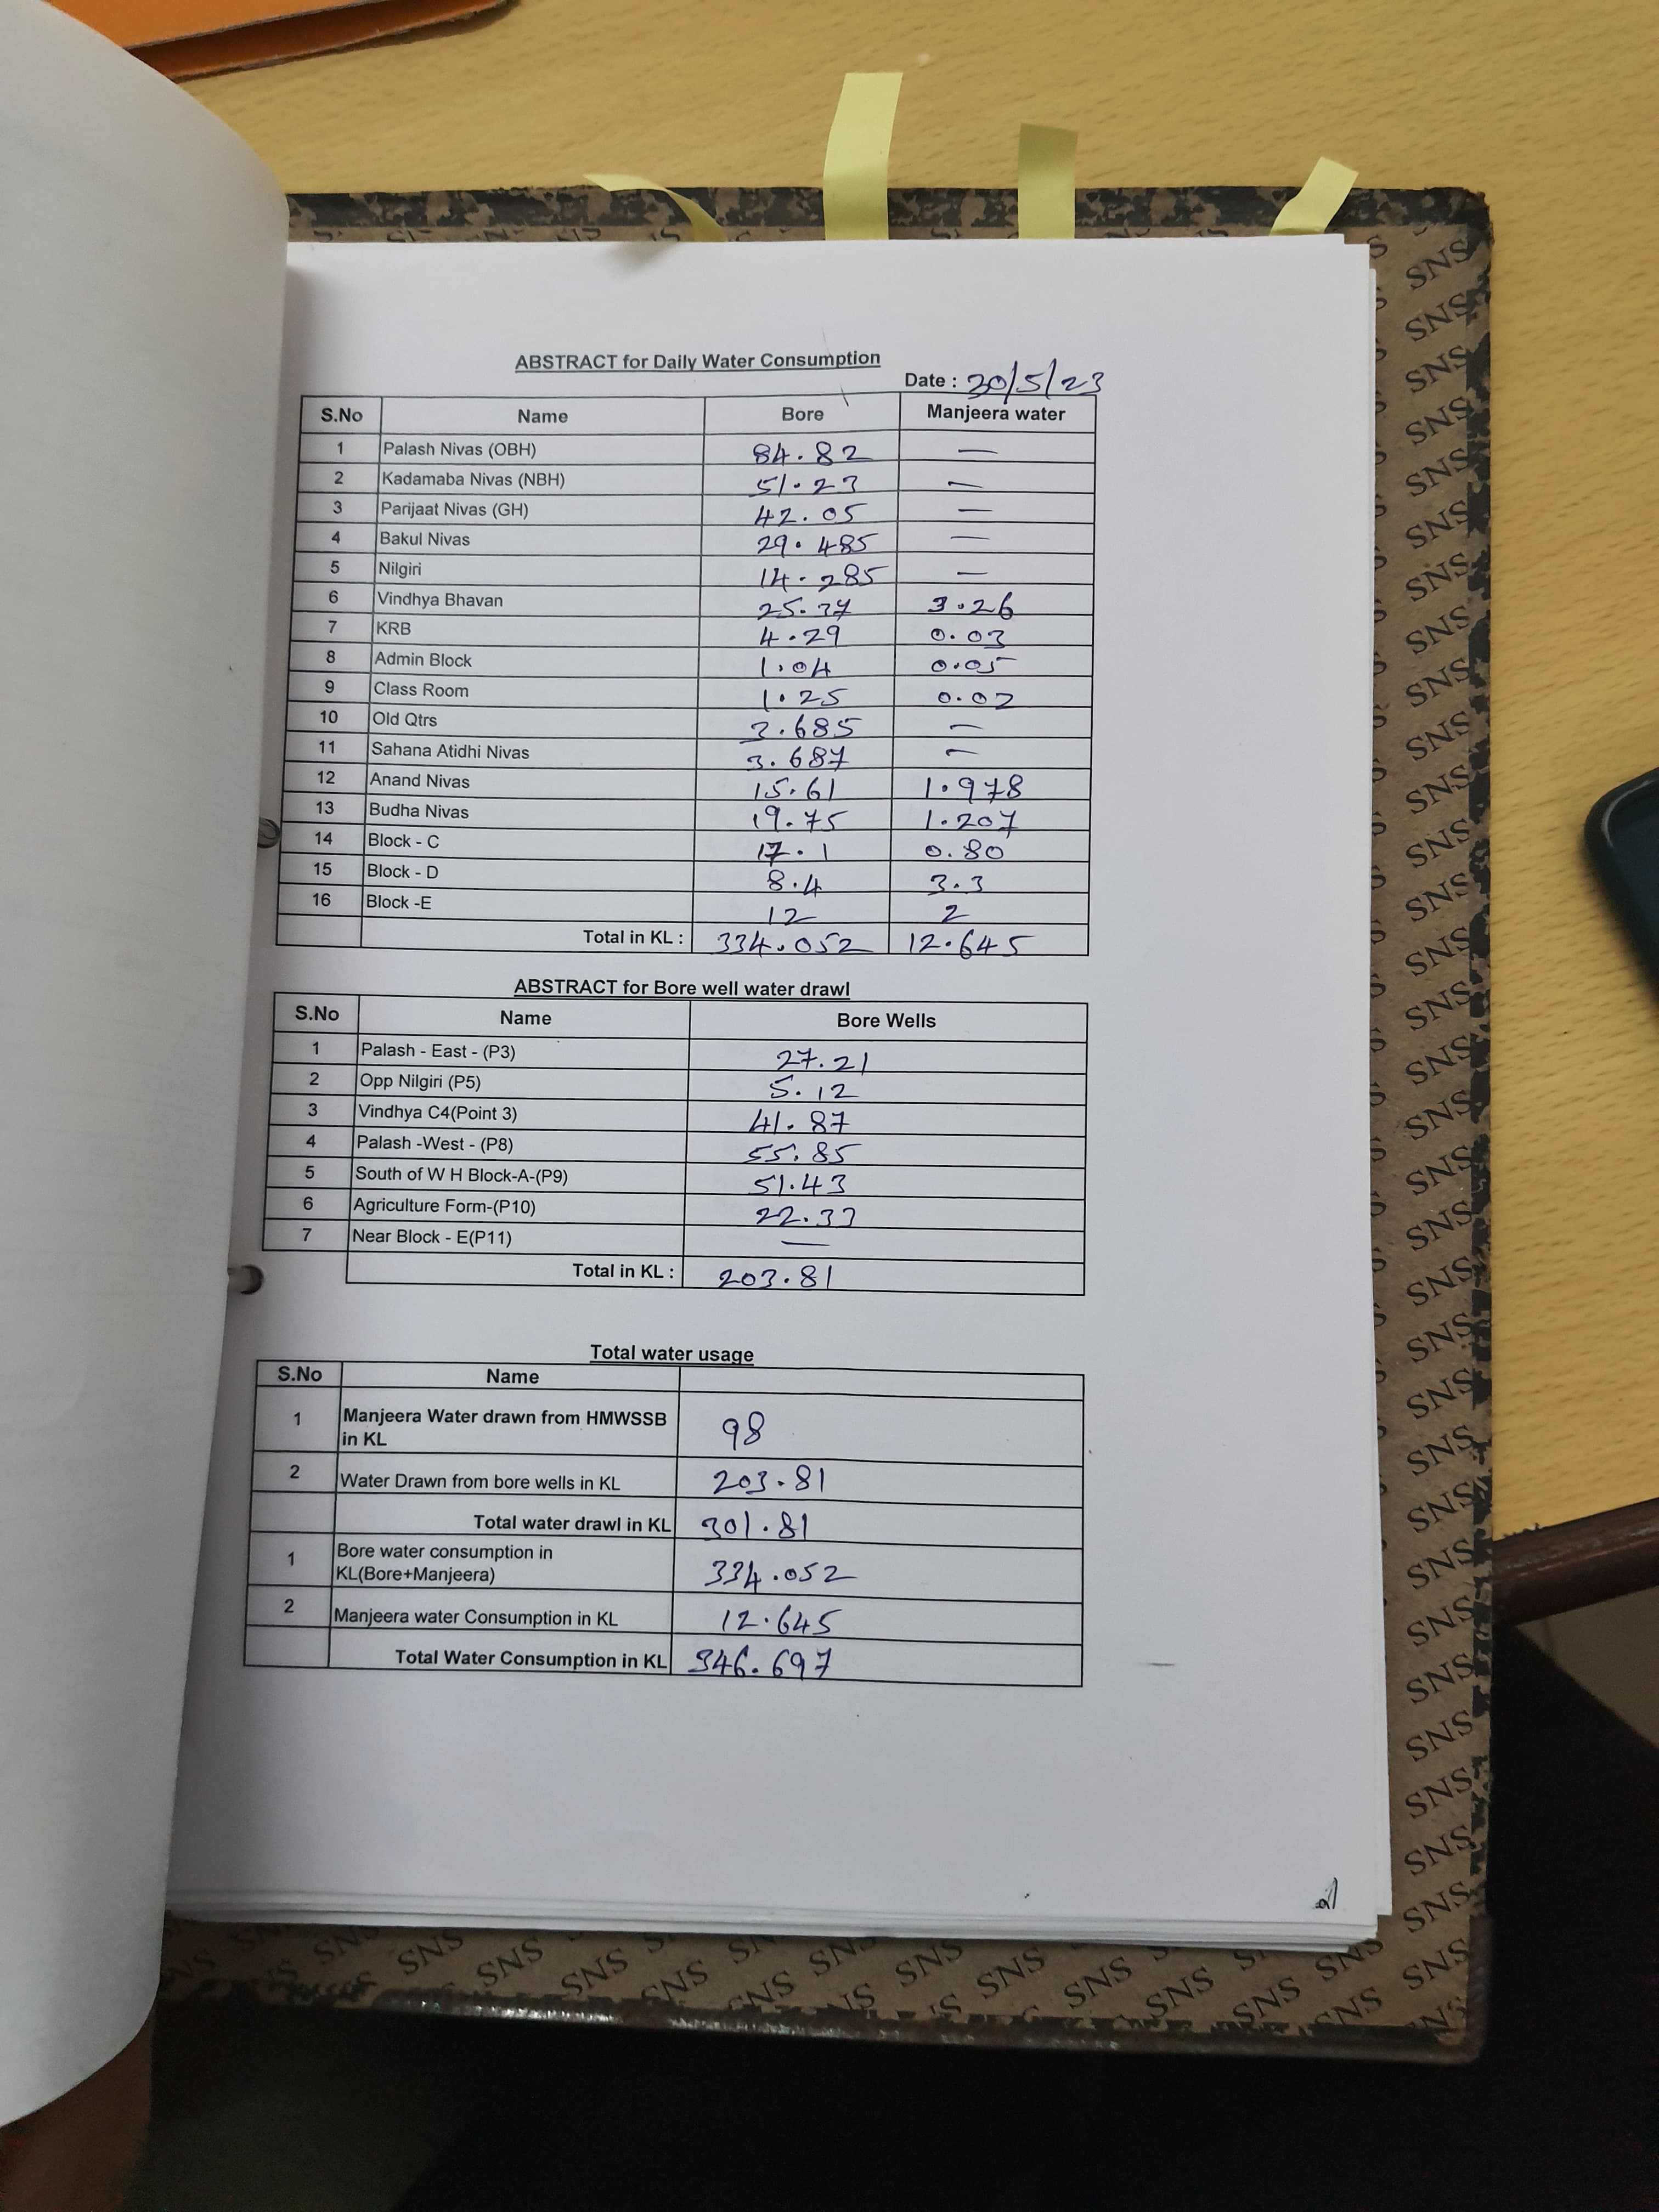 ABSTRACT for Daily Water Consumption
Date : 30/5/23
S.No Name Bore Manjeera water
1 Palash Nivas (OBH) 84.82 —
2 Kadamaba Nivas (NBH) 51.23 —
3 Parijaat Nivas (GH) 42.05 —
4 Bakul Nivas 29.485 —
5 Nilgiri 14.285 —
6 Vindhya Bhavan 25.37 3.26
7 KRB 4.29 0.03
8 Admin Block 1.04 0.05
9 Class Room 1.25 0.02
10 Old Qtrs 3.685 —
11 Sahana Atidhi Nivas 3.687 —
12 Anand Nivas 15.61 1.978
13 Budha Nivas 19.75 1.207
14 Block - C 17.1 0.80
15 Block - D 8.4 3.3
16 Block -E 12 2
Total in KL : 334.052 12.645
ABSTRACT for Bore well water drawl
S.No Name Bore Wells
1 Palash - East - (P3) 27.21
2 Opp Nilgiri (P5) 5.12
3 Vindhya C4(Point 3) 41.87
4 Palash -West - (P8) 55.85
5 South of W H Block-A-(P9) 51.43
6 Agriculture Form-(P10) 22.33
7 Near Block - E(P11) —
Total in KL : 203.81
Total water usage
S.No Name
1 Manjeera Water drawn from HMWSSB
in KL 98
2 Water Drawn from bore wells in KL 203.81
Total water drawl in KL 301.81
1 Bore water consumption in
KL(Bore+Manjeera) 334.052
2 Manjeera water Consumption in KL 12.645
Total Water Consumption in KL 346.697